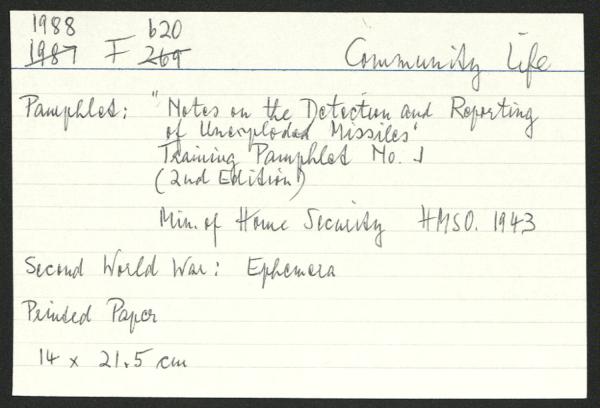 1988 620
1987 F 269 Community Life
Pamphlet: "Notes on the Detection and Reporting
of Unexploded Missiles'
Training Pamphlet No. 1
(2nd Edition)
Min. of Home Security HMSO. 1943
Second World War: Ephemera
Printed Paper
14 x 21.5 cm